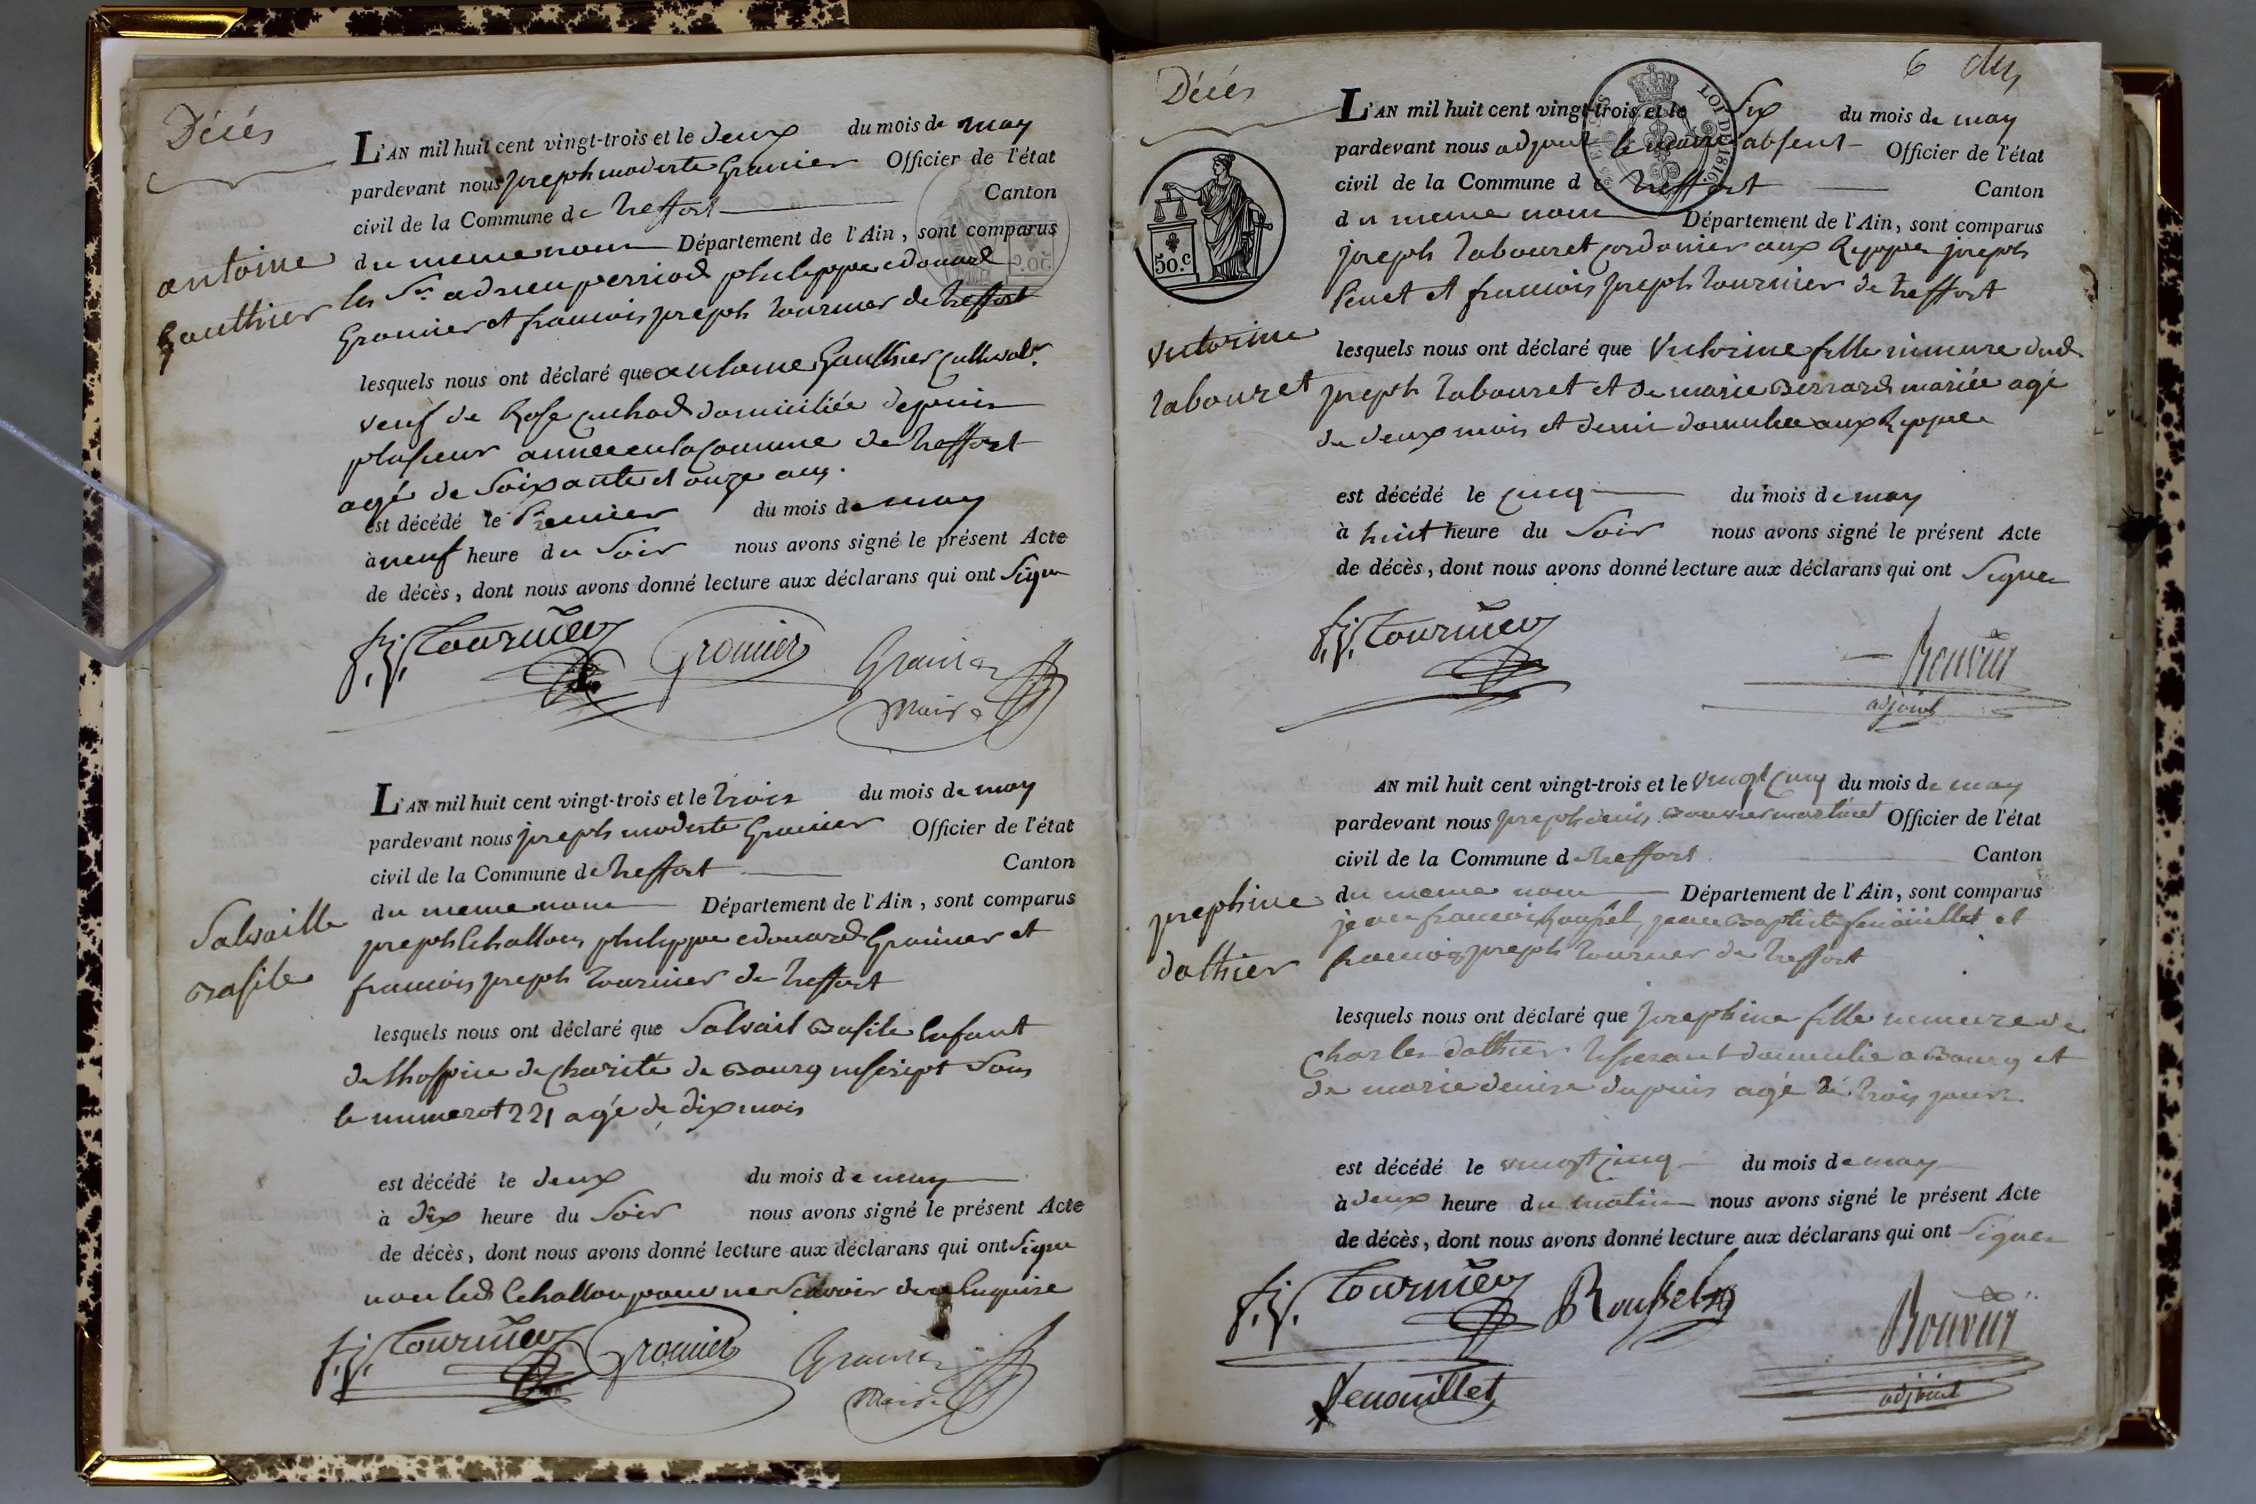 Décés
L'AN mil huit cent vingt-trois et le deux du mois de may
pardevant nous joseph modeste Gromier Officier de l'état
civil de la Commune de treffort Canton
du meme nom Département de l'Ain, sont comparus
les Sr adrien perriod philippe edouard
Gromier et francois joseph tournier de treffort
antoine
Gauthier
lesquels nous ont déclaré que antoine Gauthier Cultivatr
veuf de Rose cuchad domiciliée depuis
plusieur année en la Comune de treffort
agé de Soixante et onze ans.
est décédé le Premier du mois de may
à neuf heure du Soir nous avons signé le présent Acte
de décès, dont nous avons donné lecture aux déclarans qui ont Signe
f. j. Tournier Gromier Gromier
Maire
L'AN mil huit cent vingt-trois et le trois du mois de may
pardevant nous joseph modeste Gromier Officier de l'état
civil de la Commune de treffort Canton
du meme nom Département de l'Ain, sont comparus
joseph Echallon philippe edouard Gromier et
francois joseph tournier de treffort
Salvaille
Basile
lesquels nous ont déclaré que Salvail Basile Enfant
de lhospice de charité de Bourg inscript Sous
le numerot 221 agé de dix mois
est décédé le deux du mois de may
à dix heure du Soir nous avons signé le présent Acte
de décès, dont nous avons donné lecture aux déclarans qui ont Signe
non led Echallon pour ne Scavoir de ce Enquise
f. j. Tournier Gromier Gromier
Maire
6
Décés
L'AN mil huit cent vingt-trois et le Six du mois de may
pardevant nous adjoint le maire absent Officier de l'état
civil de la Commune de treffort Canton
du meme nom Département de l'Ain, sont comparus
joseph tabouret cordonier aux Rippes joseph
Penet et francois joseph tournier de treffort
LOI DE 1816
50.c
victorine
tabouret
lesquels nous ont déclaré que Victorine fille mineure dud.
joseph tabouret et de marie Berrard mariée agé
de deux mois et demi domicilié aux Rippes
est décédé le cinq du mois de may
à huit heure du Soir nous avons signé le présent Acte
de décès, dont nous avons donné lecture aux déclarans qui ont Signer
f. j. Tournier Bouvier
adjoint
AN mil huit cent vingt-trois et le vingt cinq du mois de may
pardevant nous joseph denis Bouvier martinet Officier de l'état
civil de la Commune de treffort Canton
du meme nom Département de l'Ain, sont comparus
jean francois Roussel, jean Baptiste fenouillet et
francois joseph tournier de treffort
josephine
dathier
lesquels nous ont déclaré que Josephine fille mineure de
Charles dathier tisserant domicilié a Bourg et
de marie denise dupuis agé de trois jours
est décédé le vingt cinq du mois de may
à deux heure du matin nous avons signé le présent Acte
de décès, dont nous avons donné lecture aux déclarans qui ont Signer
f. j. Tournier Roussel Bouvier
fenouillet adjoint